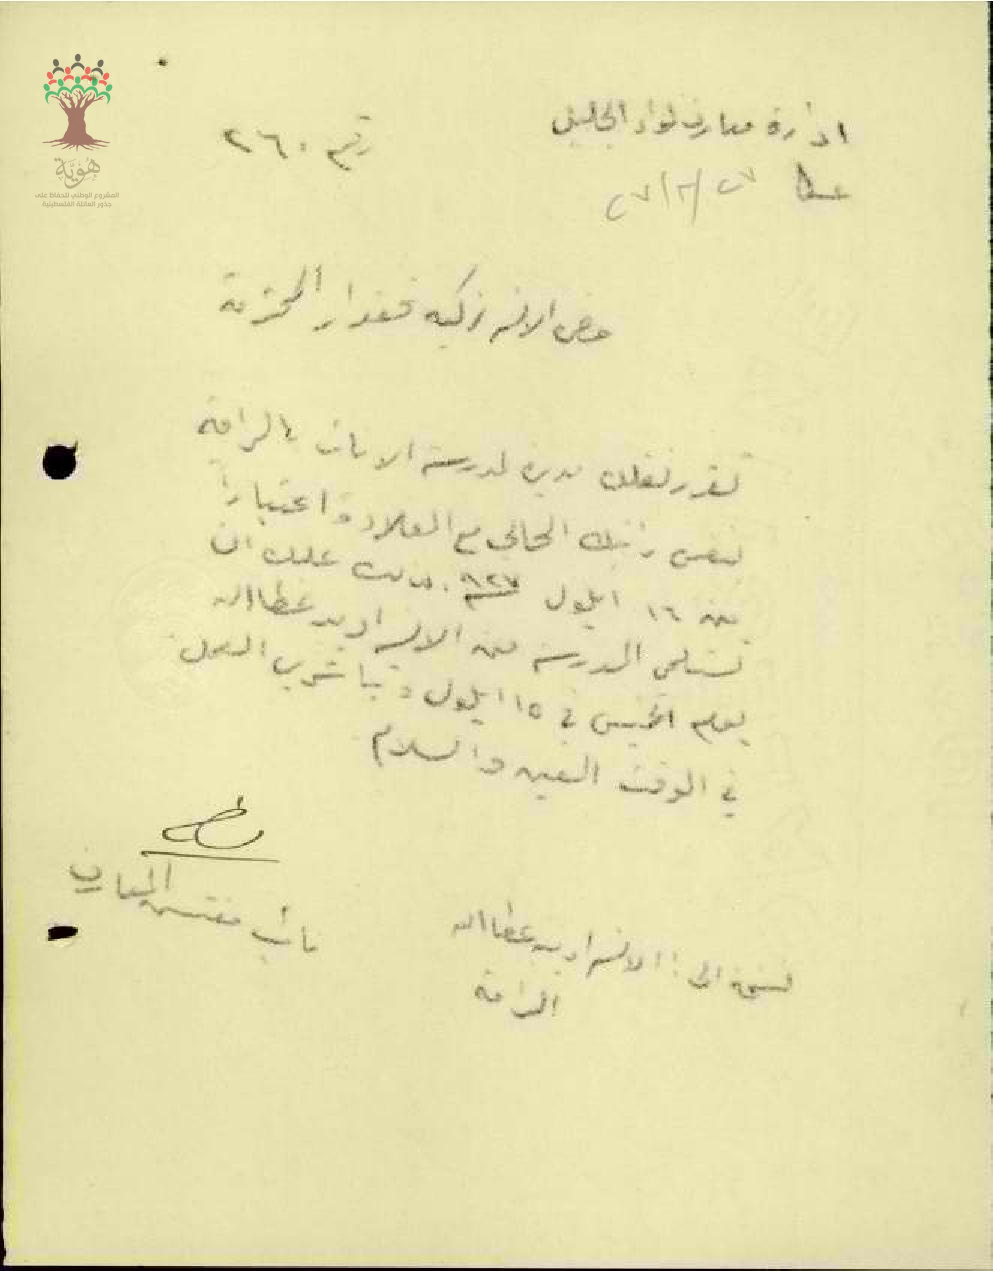 هُوِيَّة
المشروع الوطني للحفاظ على
جذور العائلة الفلسطينية
ادارة معارف لواء الجليل
رقم ٢٦٠
عكا
حضرة الانسه زكيه المحترمة
تقرر نقلك مديرة لمدرسة الاناث بالرامة
بنفس راتبك الحالي مع العلاوة اعتباراً
من ١٦ ايلول ٩٢٧ عليك ان
تستلمي المدرسة من الانسه اديبه عطاالله
يوم الخميس في ١٥ ايلول وتباشري العمل
في الوقت المعين والسلام
نائب مفتش المعارف
نسخة الى: الانسه اديبه عطاالله
الرامة